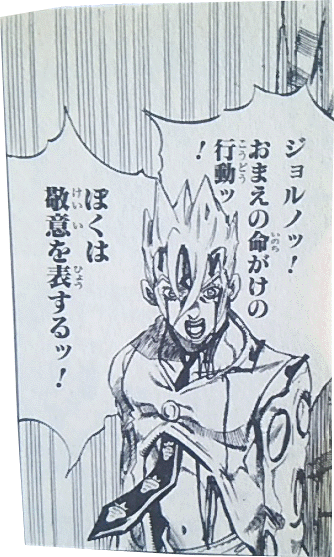 ジョルノッ！
おまえの命がけの
行動ッ
！
ぼくは
敬意を表するッ！